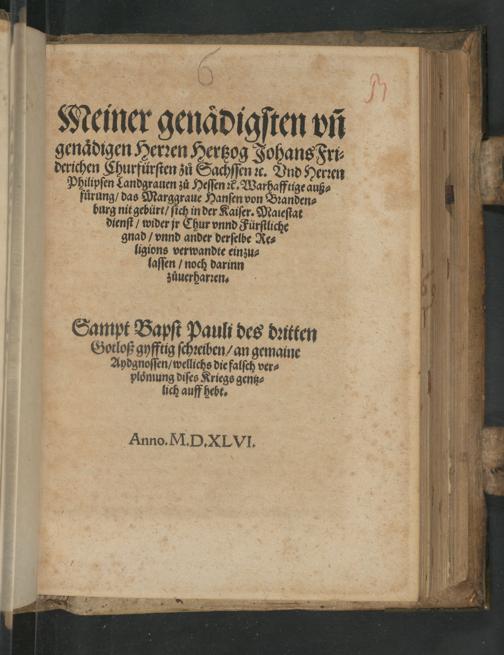 6
Meiner genådigsten vñ
genådigen Herren Hertzog Johans Fri-
derichen Churfürsten zů Sachssen ꝛc. Vnd Herren
Philipsen Landgrauen zů Hessen ꝛc. Warhafftige auß-
fürung / das Marggraue Hansen von Branden-
burg nit gebürt / sich in der Kaiser. Maiestat
dienst / wider jr Chur vnnd Fürstliche
gnad / vnnd ander derselbe Re-
ligions verwandte einzu-
lassen / noch darinn
zůuerharren.
Sampt Bapst Pauli des dritten
Gotloß gyfftig schreiben / an gemaine
Aydgnossen / wellichs die falsch ver-
plömung dises Kriegs gentz-
lich auff hebt.
Anno. M.D.XLVI.